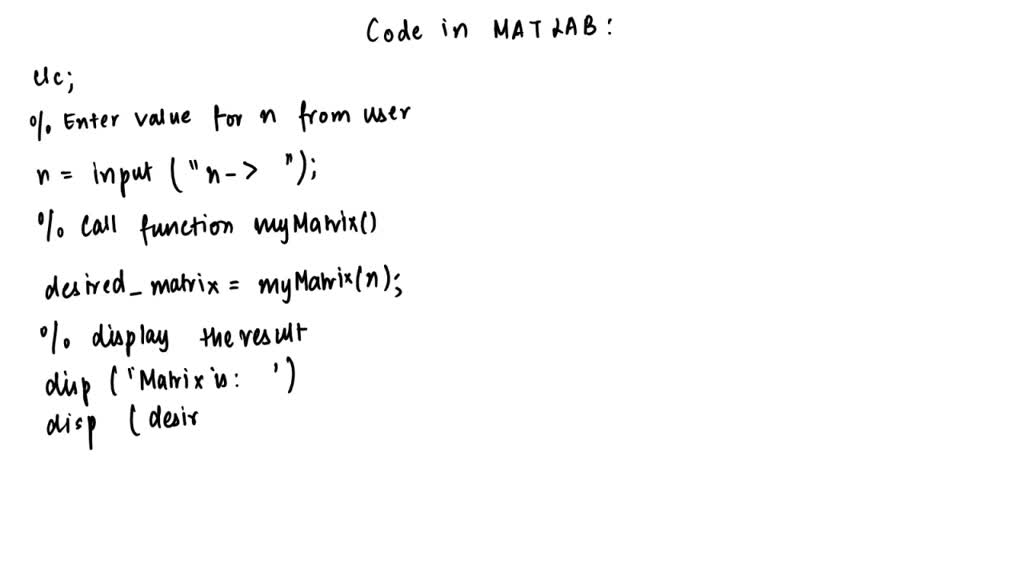 Code in MATLAB:
clc;
% Enter value for n from user
n = input ("n-> ");
% Call function myMatrix()
desired_matrix = myMatrix(n);
% display the result
disp ("Matrix is: ')
disp (desir